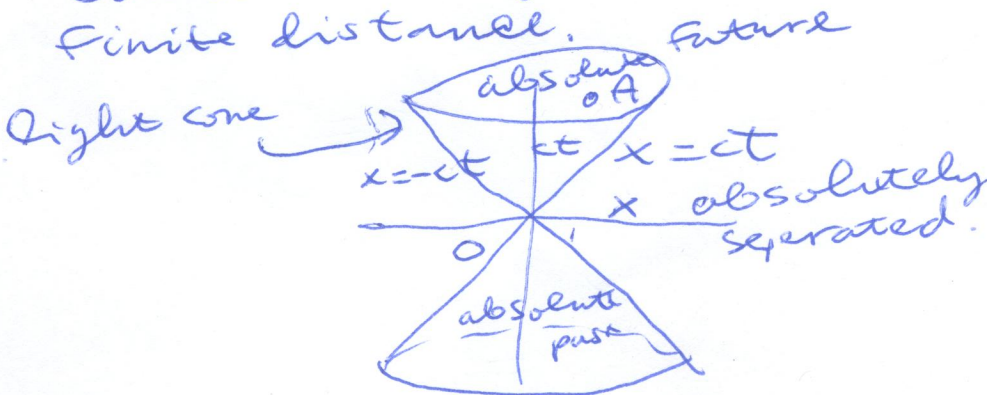 Finite distance.
future
absolute
A
light cone
x=-ct
ct
x=ct
x
absolutely
seperated.
O
absolute
past